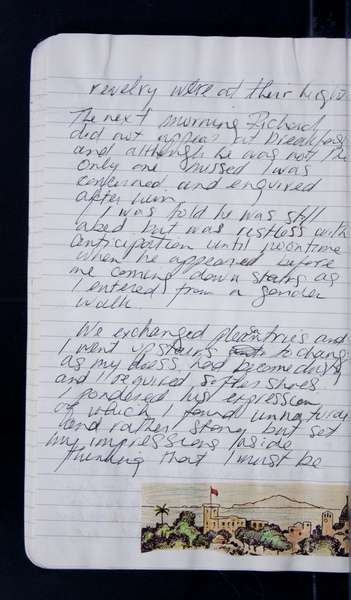 revelry were at their height
The next morning Richard
did not appear at breakfast
and although he was not the
only one missed I was
concerned and enquired
after him.
I was told he was still
abed but was restless with
anticipation until noontime
when he appeared before
me coming down stairs as
I entered from a garden
walk.
We exchanged pleantries and
I went upstairs to change
as my dress had become dusty
and I required softer shoes
I pondered his expression
of which I found unnatural
and rather stony but set
my impressions aside
thinking that I must be